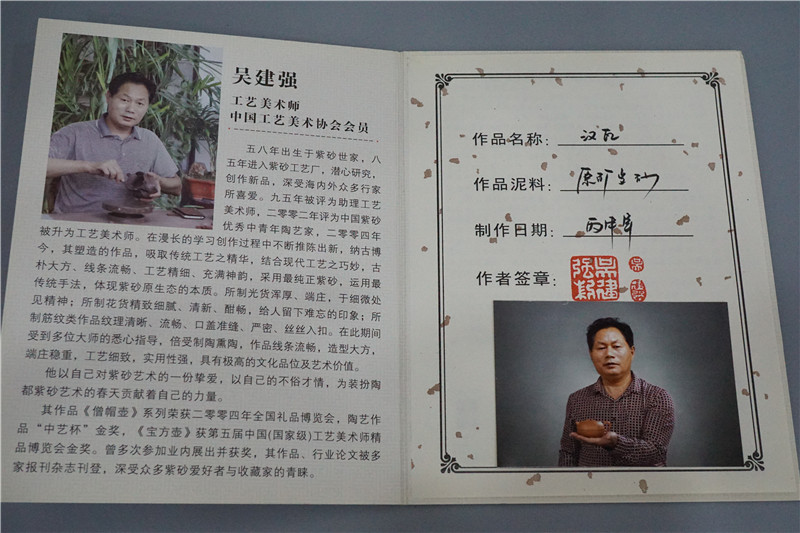 吴建强
工艺美术师
中国工艺美术协会会员
五八年出生于紫砂世家，八
五年进入紫砂工艺厂，潜心研究，
创作新品，深受海内外众多行家
所喜爱。九五年被评为助理工艺
美术师，二零零二年评为中国紫砂
优秀中青年陶艺家，二零零四年
被升为工艺美术师。在漫长的学习创作过程中不断推陈出新，纳古博
今，其塑造的作品，吸取传统工艺之精华，结合现代工艺之巧妙，古
朴大方、线条流畅、工艺精细、充满神韵，采用最纯正紫砂，运用最
传统手法，体现紫砂原生态的本质。所制光货浑厚、端庄，于细微处
见精神；所制花货精致细腻、清新、酣畅，给人留下难忘的印象；所
制筋纹类作品纹理清晰、流畅、口盖准缝、严密、丝丝入扣。在此期间
受到多位大师的悉心指导，倍受制陶熏陶，作品线条流畅，造型大方，
端庄稳重，工艺细致，实用性强，具有极高的文化品位及艺术价值。
他以自己对紫砂艺术的一份挚爱，以自己的不俗才情，为装扮陶
都紫砂艺术的春天贡献着自己的力量。
其作品《僧帽壶》系列荣获二零零四年全国礼品博览会，陶艺作
品“中艺杯”金奖，《宝方壶》获第五届中国(国家级)工艺美术师精
品博览会金奖。曾多次参加业内展出并获奖，其作品、行业论文被多
家报刊杂志刊登，深受众多紫砂爱好者与收藏家的青睐。
作品名称：汉瓦
作品泥料：原矿紫砂
制作日期：丙申年
作者签章：
吴建强印